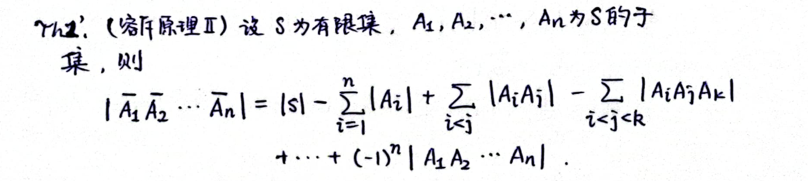 Th2'. (容斥原理Ⅱ) 设 S 为有限集, A₁, A₂, ⋯, Aₙ 为 S 的子
集, 则
|Ā₁ Ā₂ ⋯ Āₙ| = |S| - ∑_{i=1}^{n} |Aᵢ| + ∑_{i<j} |AᵢAⱼ| - ∑_{i<j<k} |AᵢAⱼAₖ|
+ ⋯ + (-1)ⁿ | A₁ A₂ ⋯ Aₙ| .